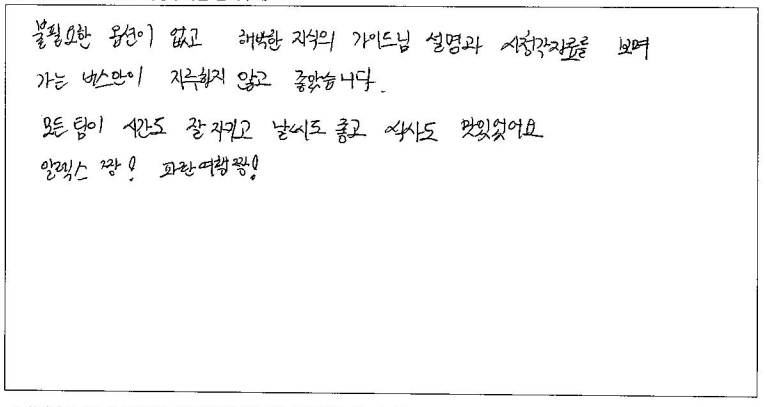 불필요한 옵션이 없고 해박한 지식의 가이드님 설명과 시청각자료를 보며
가는 버스안이 지루하지 않고 좋았습니다.
모든 팀이 시간도 잘 지키고 날씨도 좋고 식사도 맛있었어요
알렉스 짱! 파란여행짱!